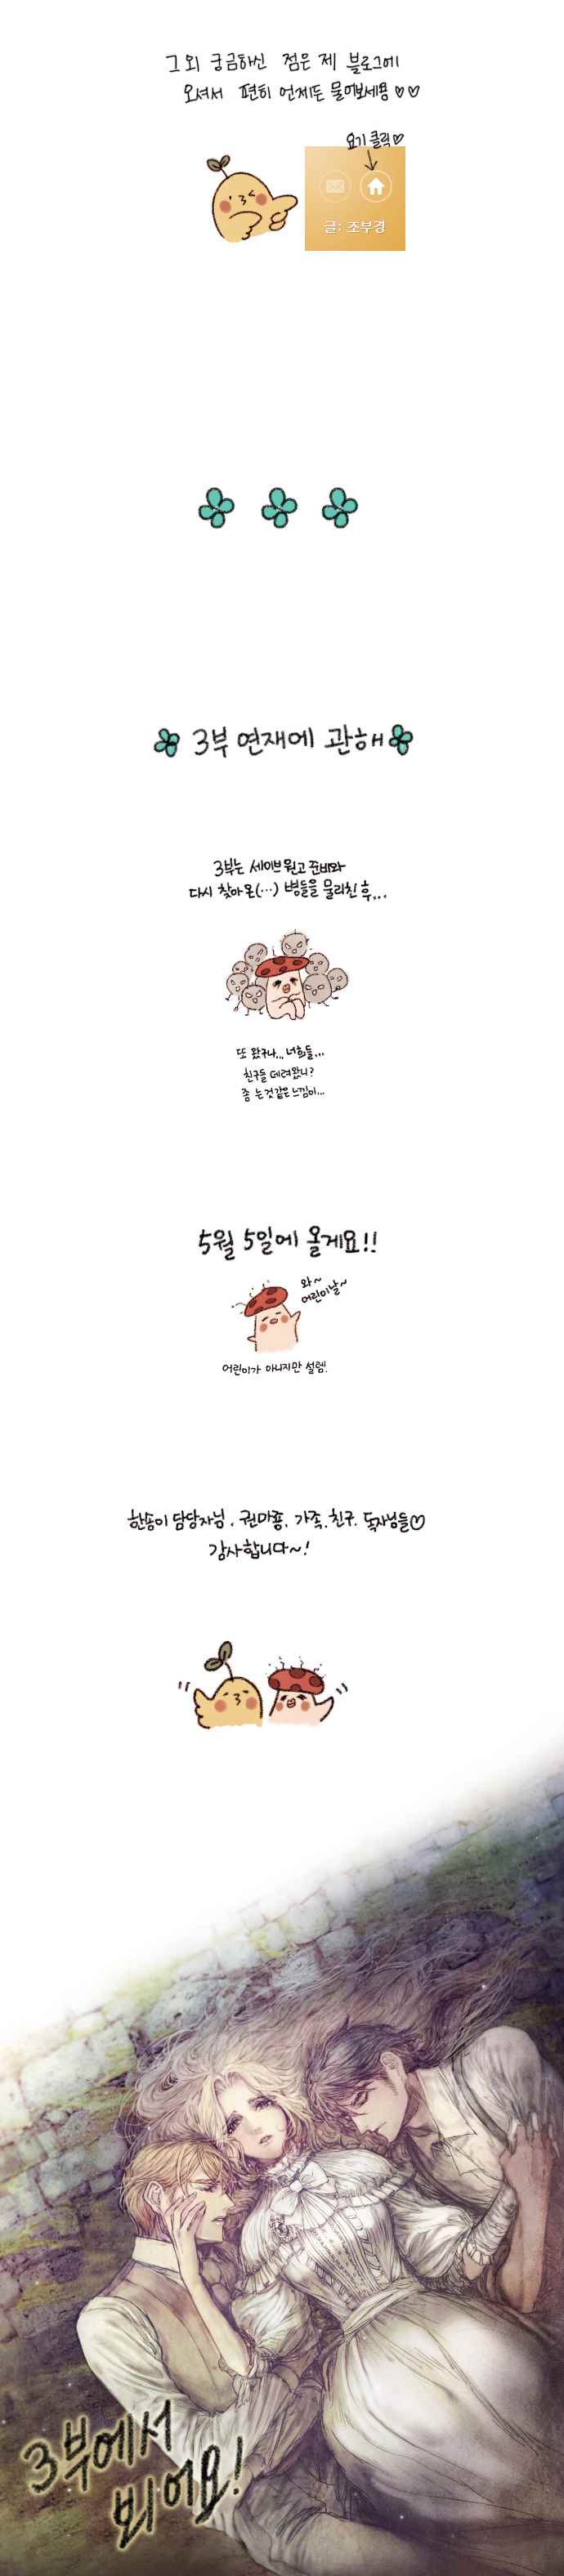 그 외 궁금하신 점은 제 블로그에
오셔서 편히 언제든 물어보세용 ♡♡
요기 클릭♡
글: 조부경
3부 연재에 관해
3부는 세이브 원고 준비와
다시 찾아온(…) 병들을 물리친 후...
또 왔구나... 너희들...
친구들 데려왔니?
좀 는 것 같은 느낌이...
5월 5일에 올게요!!
와~
어린이날~
어린이가 아니지만 설렘.
한송이 담당자님, 권마푱, 가족, 친구, 독자님들♡
감사합니다~!
3부에서
뵈어요!